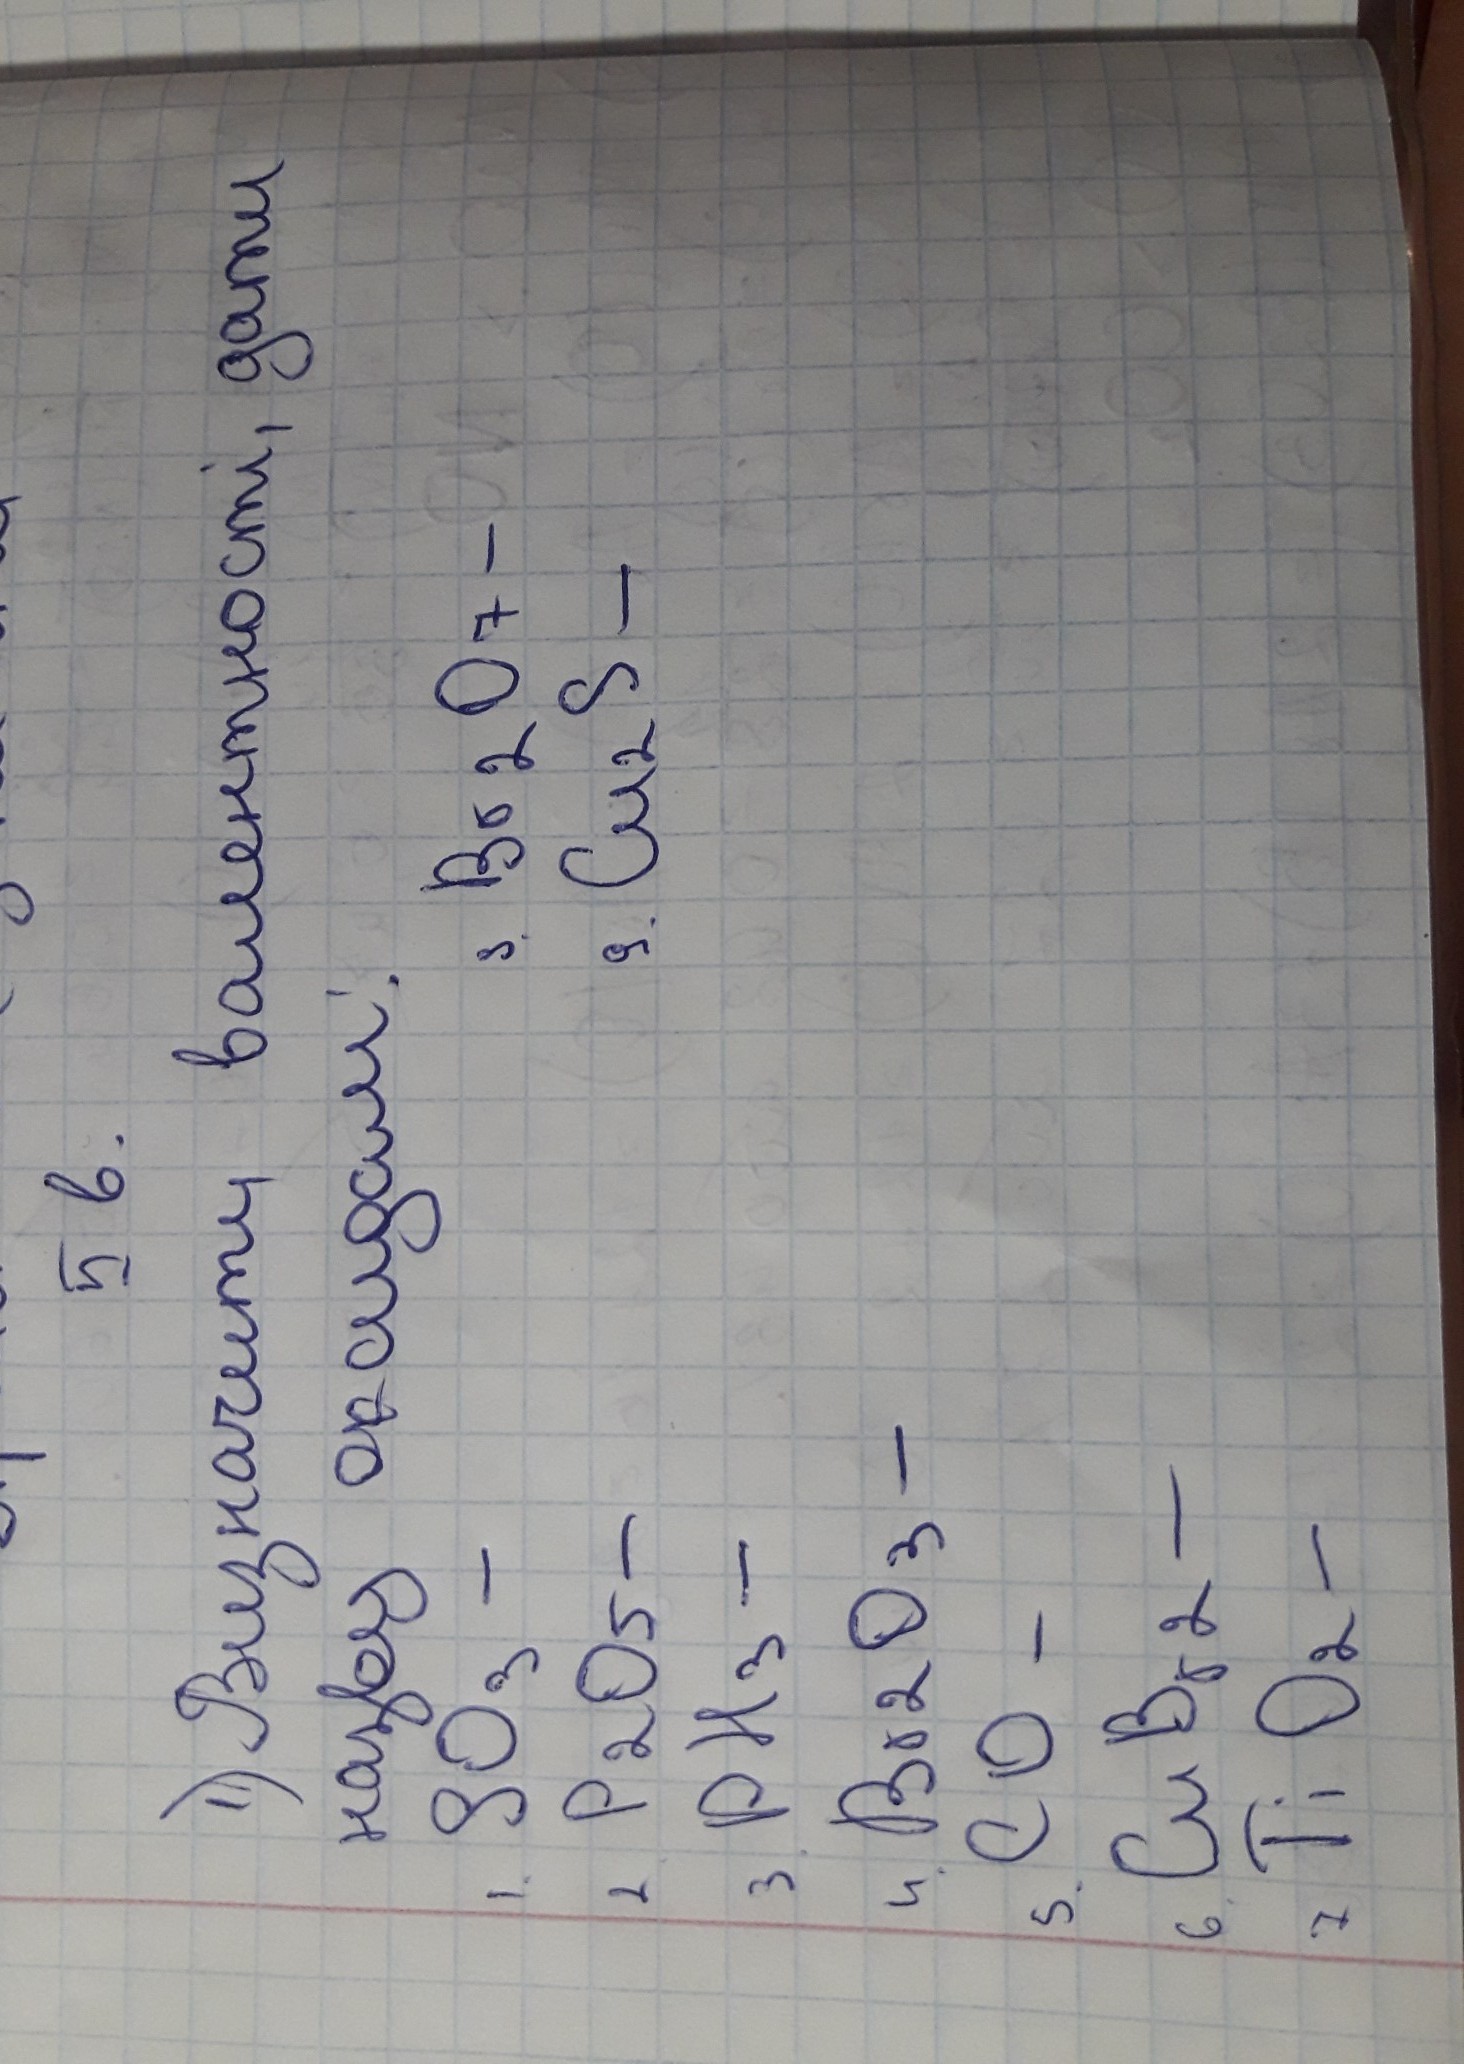 II в.
1) Визначити валентності, дати
назву оксидам:
1. SO3 –
2. P2O5 –
3. PH3 –
4. Br2O3 –
5. CO –
6. CuBr2 –
7 TiO2 –
8. Br2O7 –
9. Cu2S –